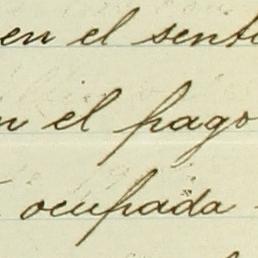 en el sent
el pago
ocupada